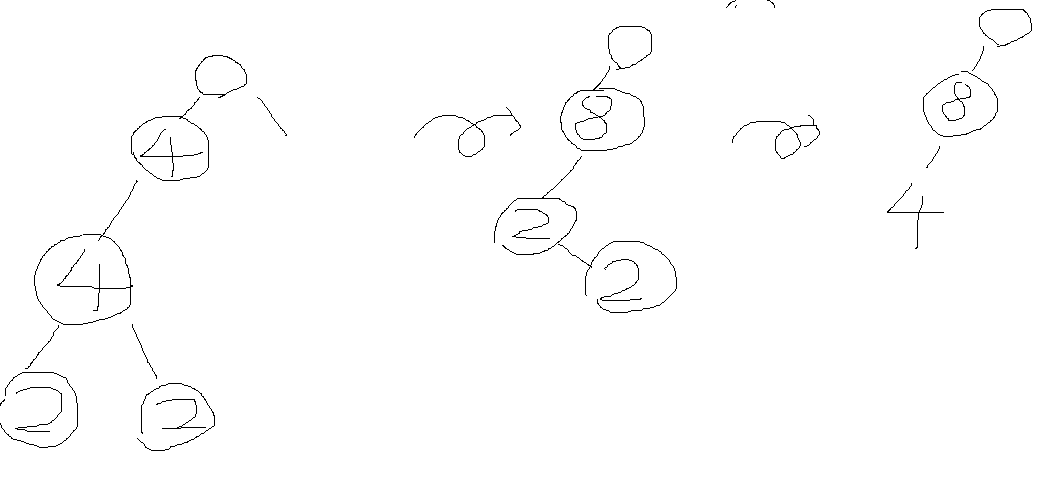 4
4
2 2
8
2
2
8
4